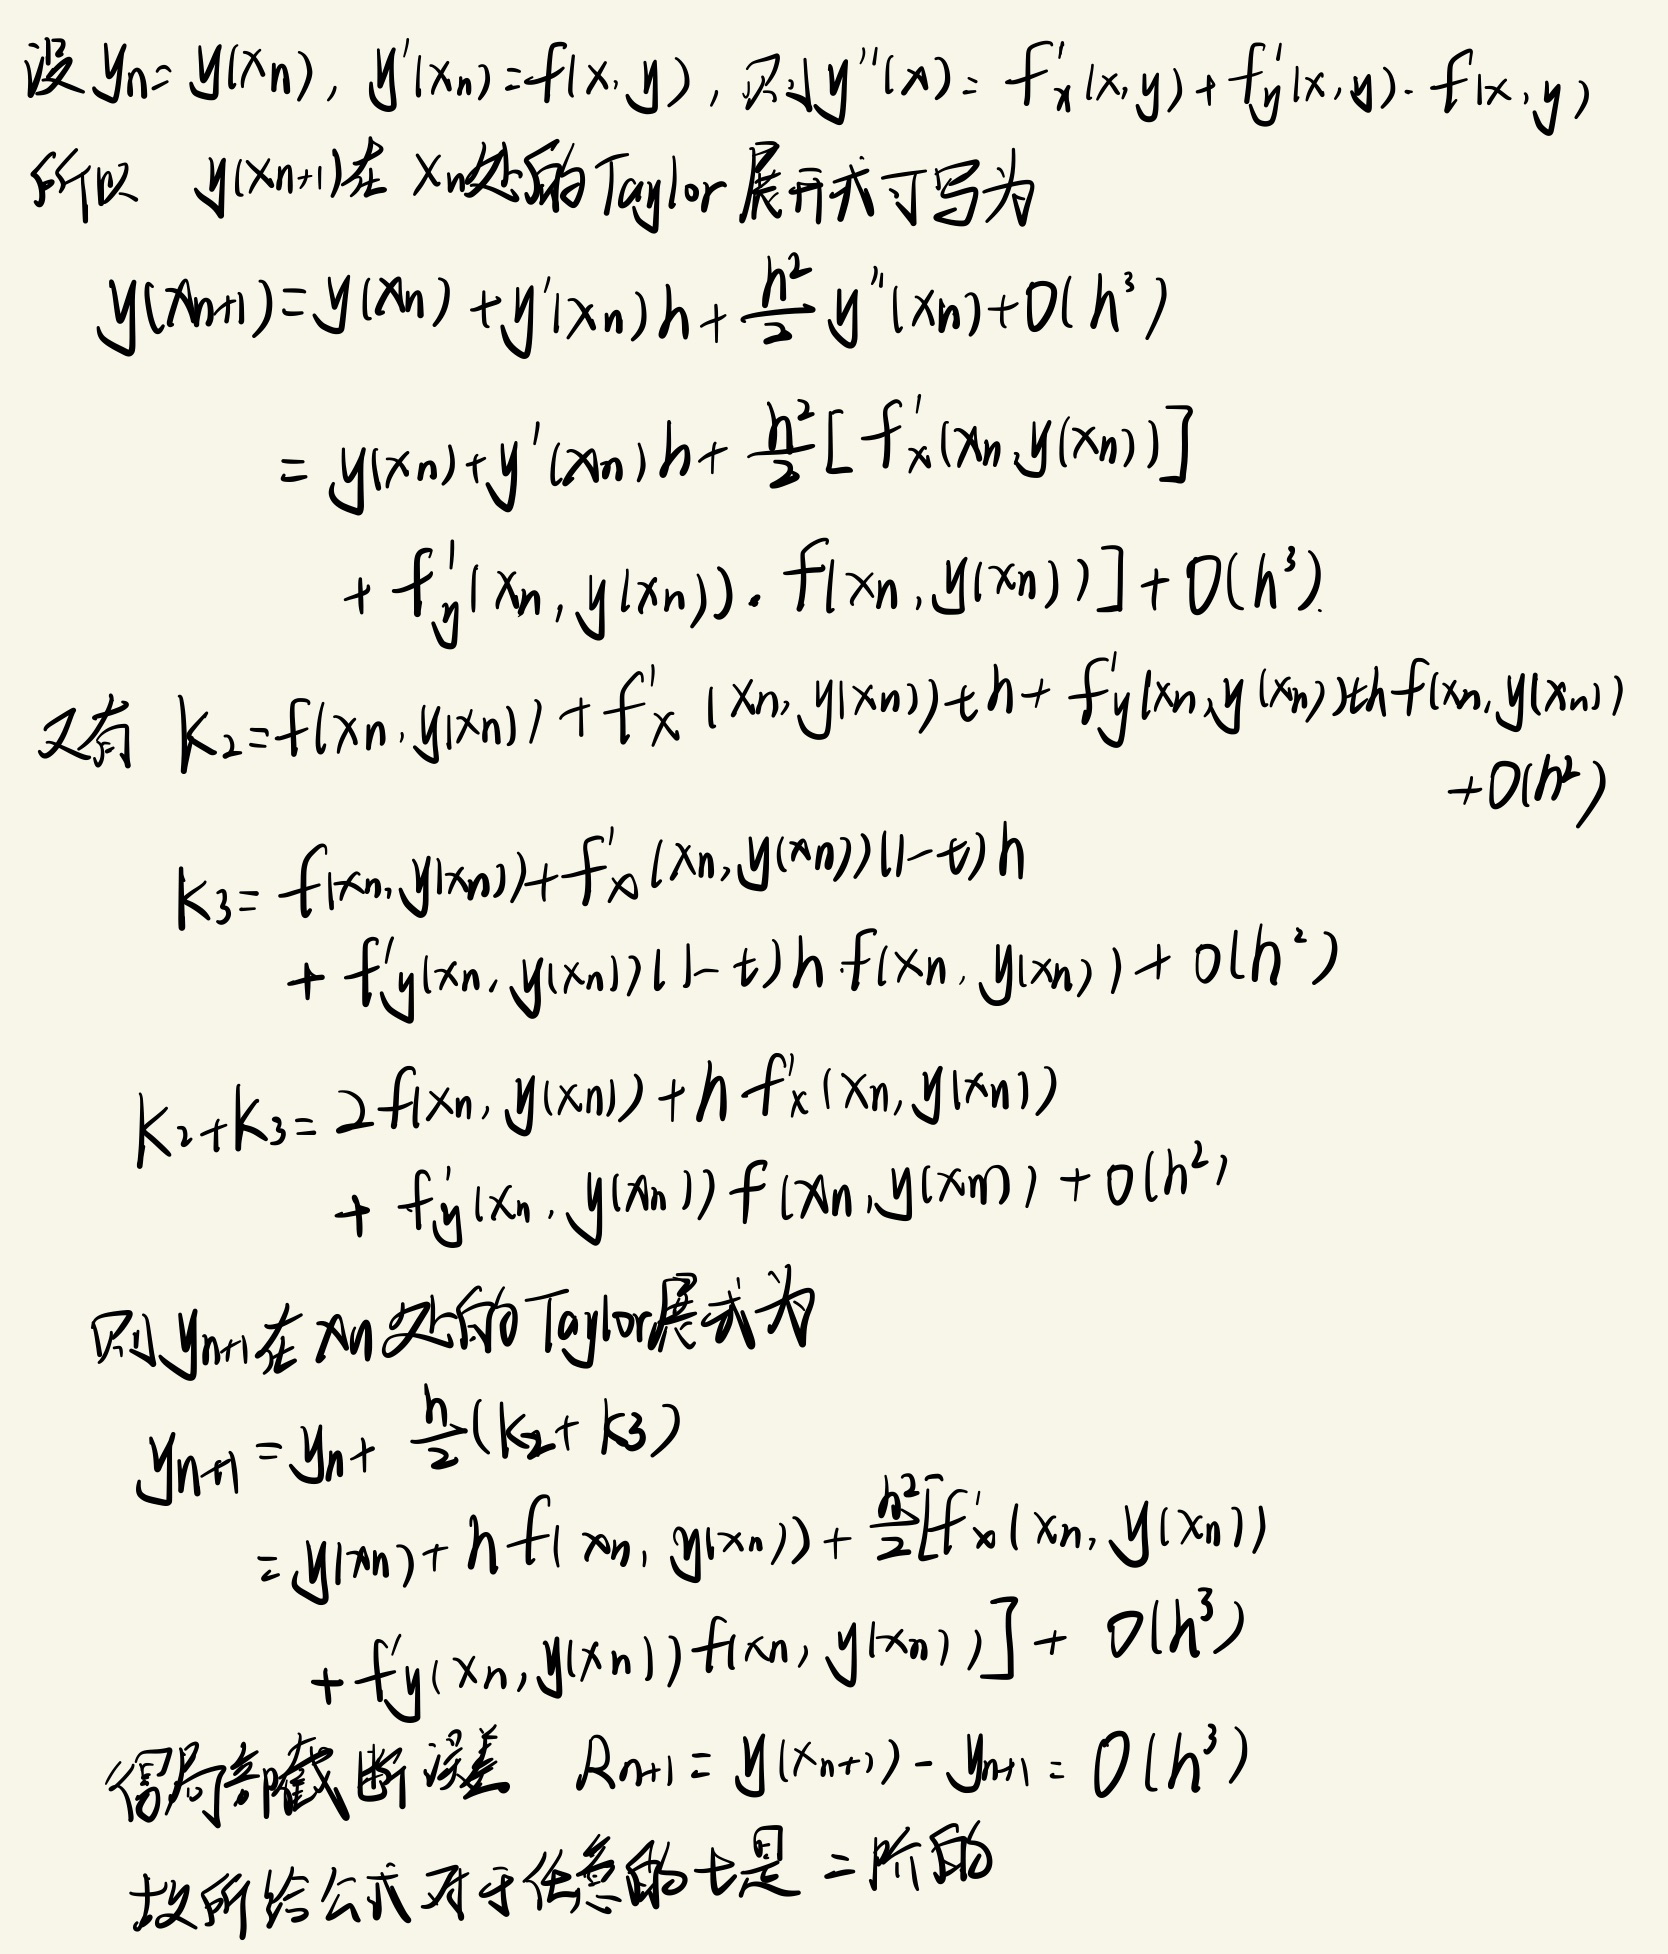 设 yn = y(xn), y'(xn) = f(x, y), 则 y''(x) = f'x(x, y) + f'y(x, y) · f(x, y)
所以 y(xn+1)在 xn处的Taylor展开式可写为
y(xn+1) = y(xn) + y'(xn)h + h²/2 y''(xn) + O(h³)
= y(xn) + y'(xn)h + h²/2 [f'x(xn, y(xn))]
+ f'y(xn, y(xn)) · f(xn, y(xn))] + O(h³)
又有 K2 = f(xn, y(xn)) + f'x(xn, y(xn))th + f'y(xn, y(xn))thf(xn, y(xn))
+O(h²)
K3 = f(xn, y(xn)) + f'x(xn, y(xn))(1-t)h
+ f'y(xn, y(xn))(1-t)h f(xn, y(xn)) + O(h²)
K2+K3 = 2f(xn, y(xn)) + h f'x(xn, y(xn))
+ f'y(xn, y(xn)) f(xn, y(xn)) + O(h²)
则yn+1在xn处的Taylor展式为
yn+1 = yn + h/2 (K2 + K3)
= y(xn) + h f(xn, y(xn)) + h²/2 [f'x(xn, y(xn))
+ f'y(xn, y(xn)) f(xn, y(xn))] + O(h³)
得局部截断误差 Rn+1 = y(xn+1) - yn+1 = O(h³)
故所给公式对于任意的t是二阶的